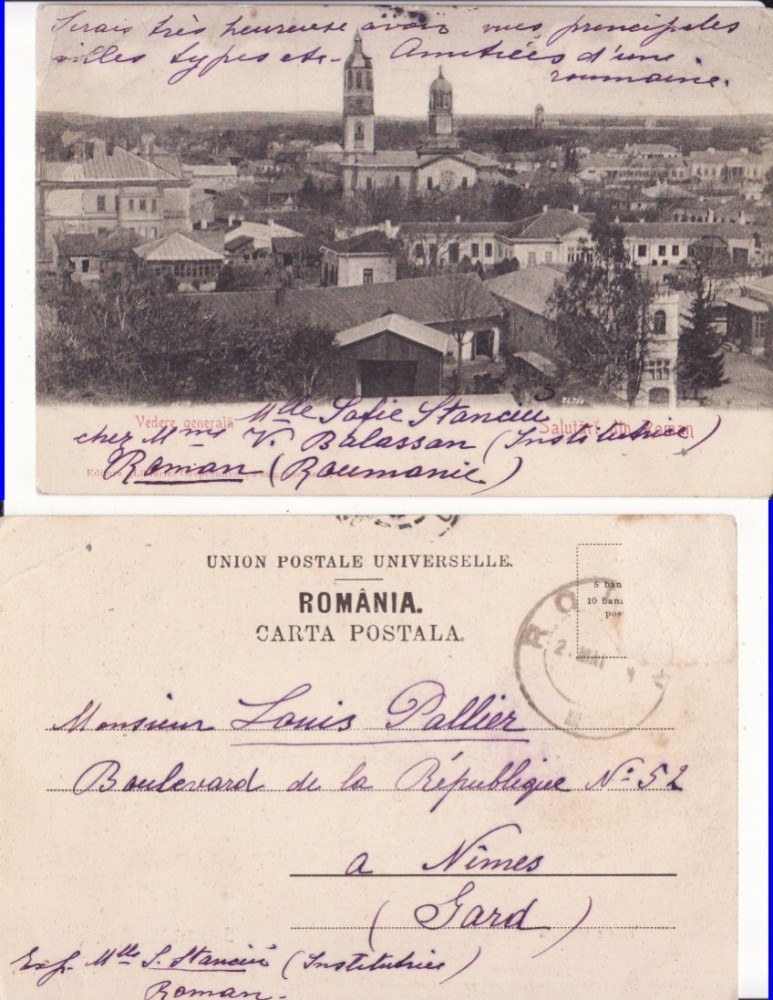 Serais très heureuse avoir vues principales
villes types etc- Amitiées d'une
roumaine.
Vedere generală
Salutări din Roman
Mlle Sofie Stanciu
chez Mme V. Balassan (Institutrice)
Roman (Roumanie)
UNION POSTALE UNIVERSELLE.
ROMÂNIA.
CARTA POSTALA.
5 ban
10 bani
pos
RO
2. MAI
Monsieur Louis Pallier
Boulevard de la République No. 52
a Nîmes
(Gard)
Exp. Mlle S. Stanciu (Institutrice)
Roman-